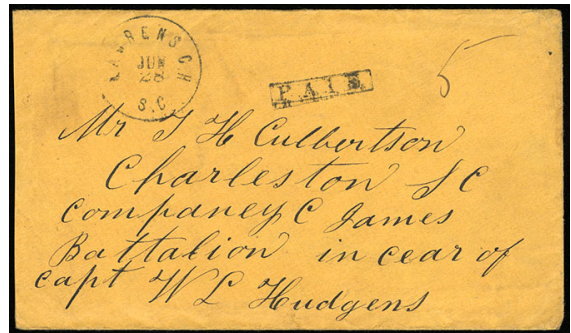 LAURENS C.H.
JUN
28
S.C.
PAID
5
Mr T H Culbertson
Charleston S C
companey C James
Battalion in cear of
capt W L Hudgens